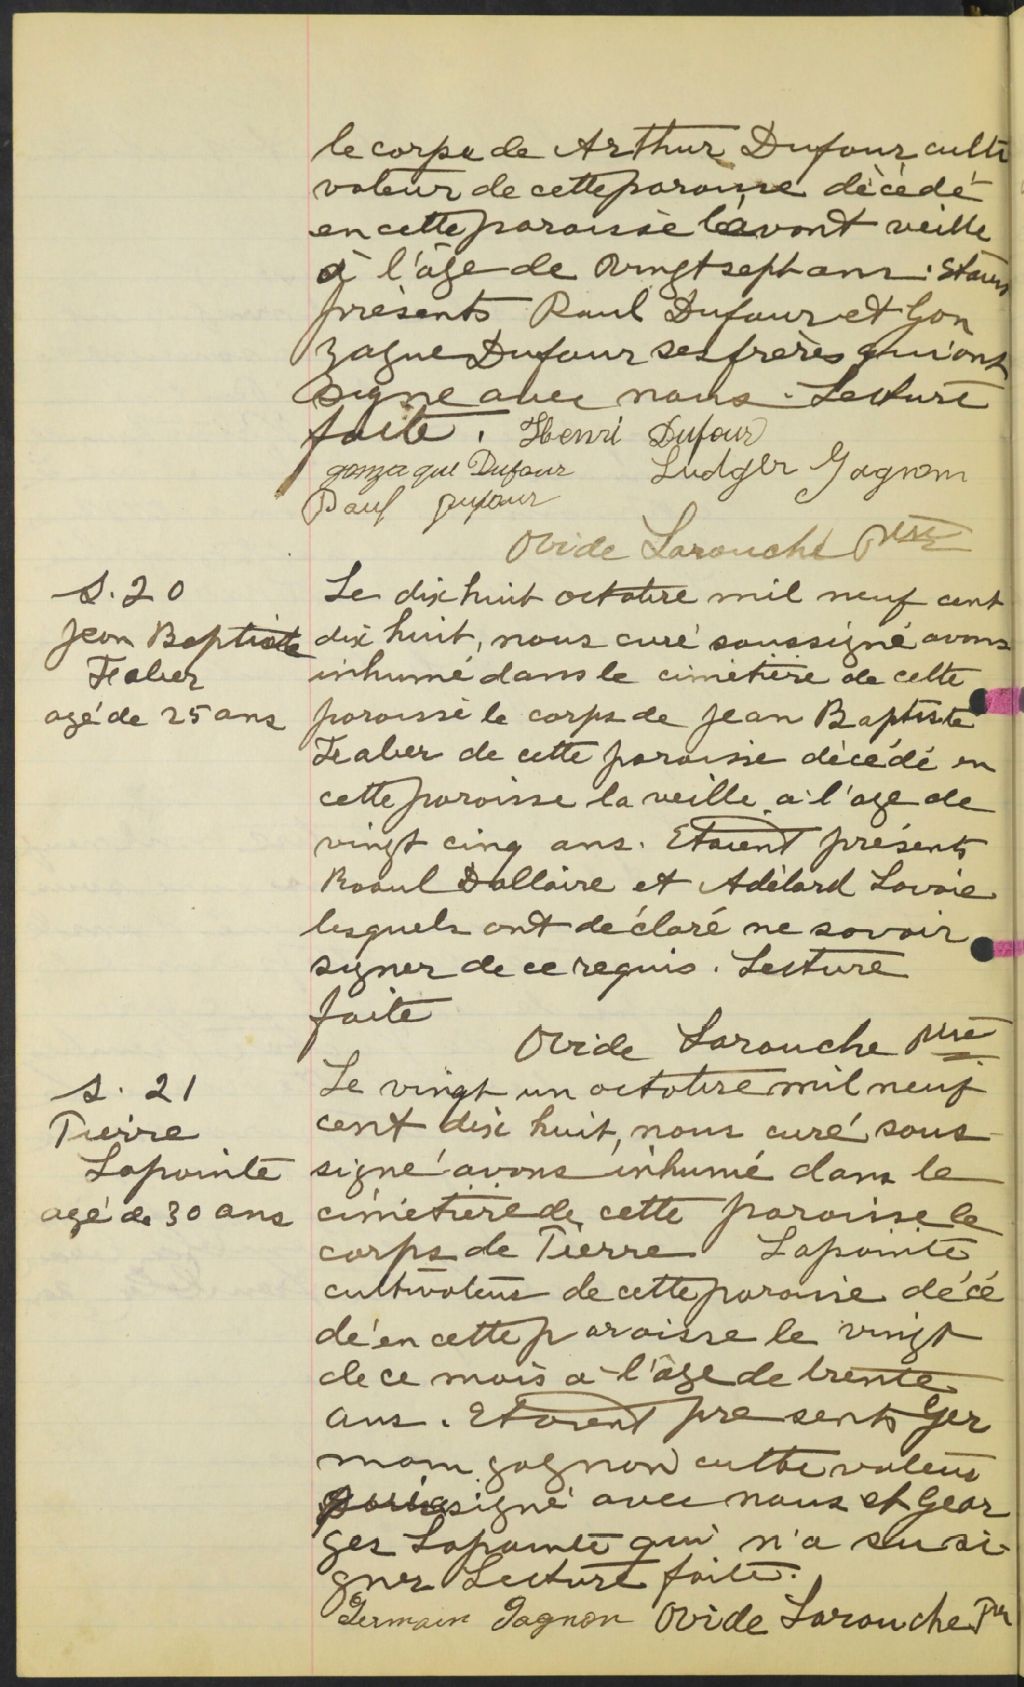 le corps de Arthur Dufour culti
vateur de cette paroisse décédé
en cette paroisse l'avant veille
à l'âge de vingt sept ans. Etaient
présents Paul Dufour et Gon
zague Dufour ses frères qui ont
signé avec nous. Lecture
faite. Henri Dufour
gonzague Dufour Ludger Gagnon
Paul Dufour
Ovide Larouche Ptre
S. 20
Jean Baptiste
Fraber
agé de 25 ans
Le dix huit octobre mil neuf cent
dix huit, nous curé soussigné avons
inhumé dans le cimetière de cette
paroisse le corps de Jean Baptiste
Fraber de cette paroisse décédé en
cette paroisse la veille à l'age de
vingt cinq ans. Etaient présents
Raoul Dallaire et Adélard Lavoie
lesquels ont déclaré ne savoir
signer de ce requis. Lecture
faite
Ovide Larouche ptre
S. 21
Pierre
Lapointe
agé de 30 ans
Le vingt un octobre mil neuf
cent dix huit, nous curé sous
signé avons inhumé dans le
cimetière de cette paroisse le
corps de Pierre Lapointe
cultivateur de cette paroisse décé
dé en cette paroisse le vingt
de ce mois à l'âge de trente
ans. Etaient presents Ger
main gagnon cultivateur
signé avec nous et Geor
ges Lapointe qui n'a su si-
gner Lecture faite.
Germain Gagnon Ovide Larouche Ptr